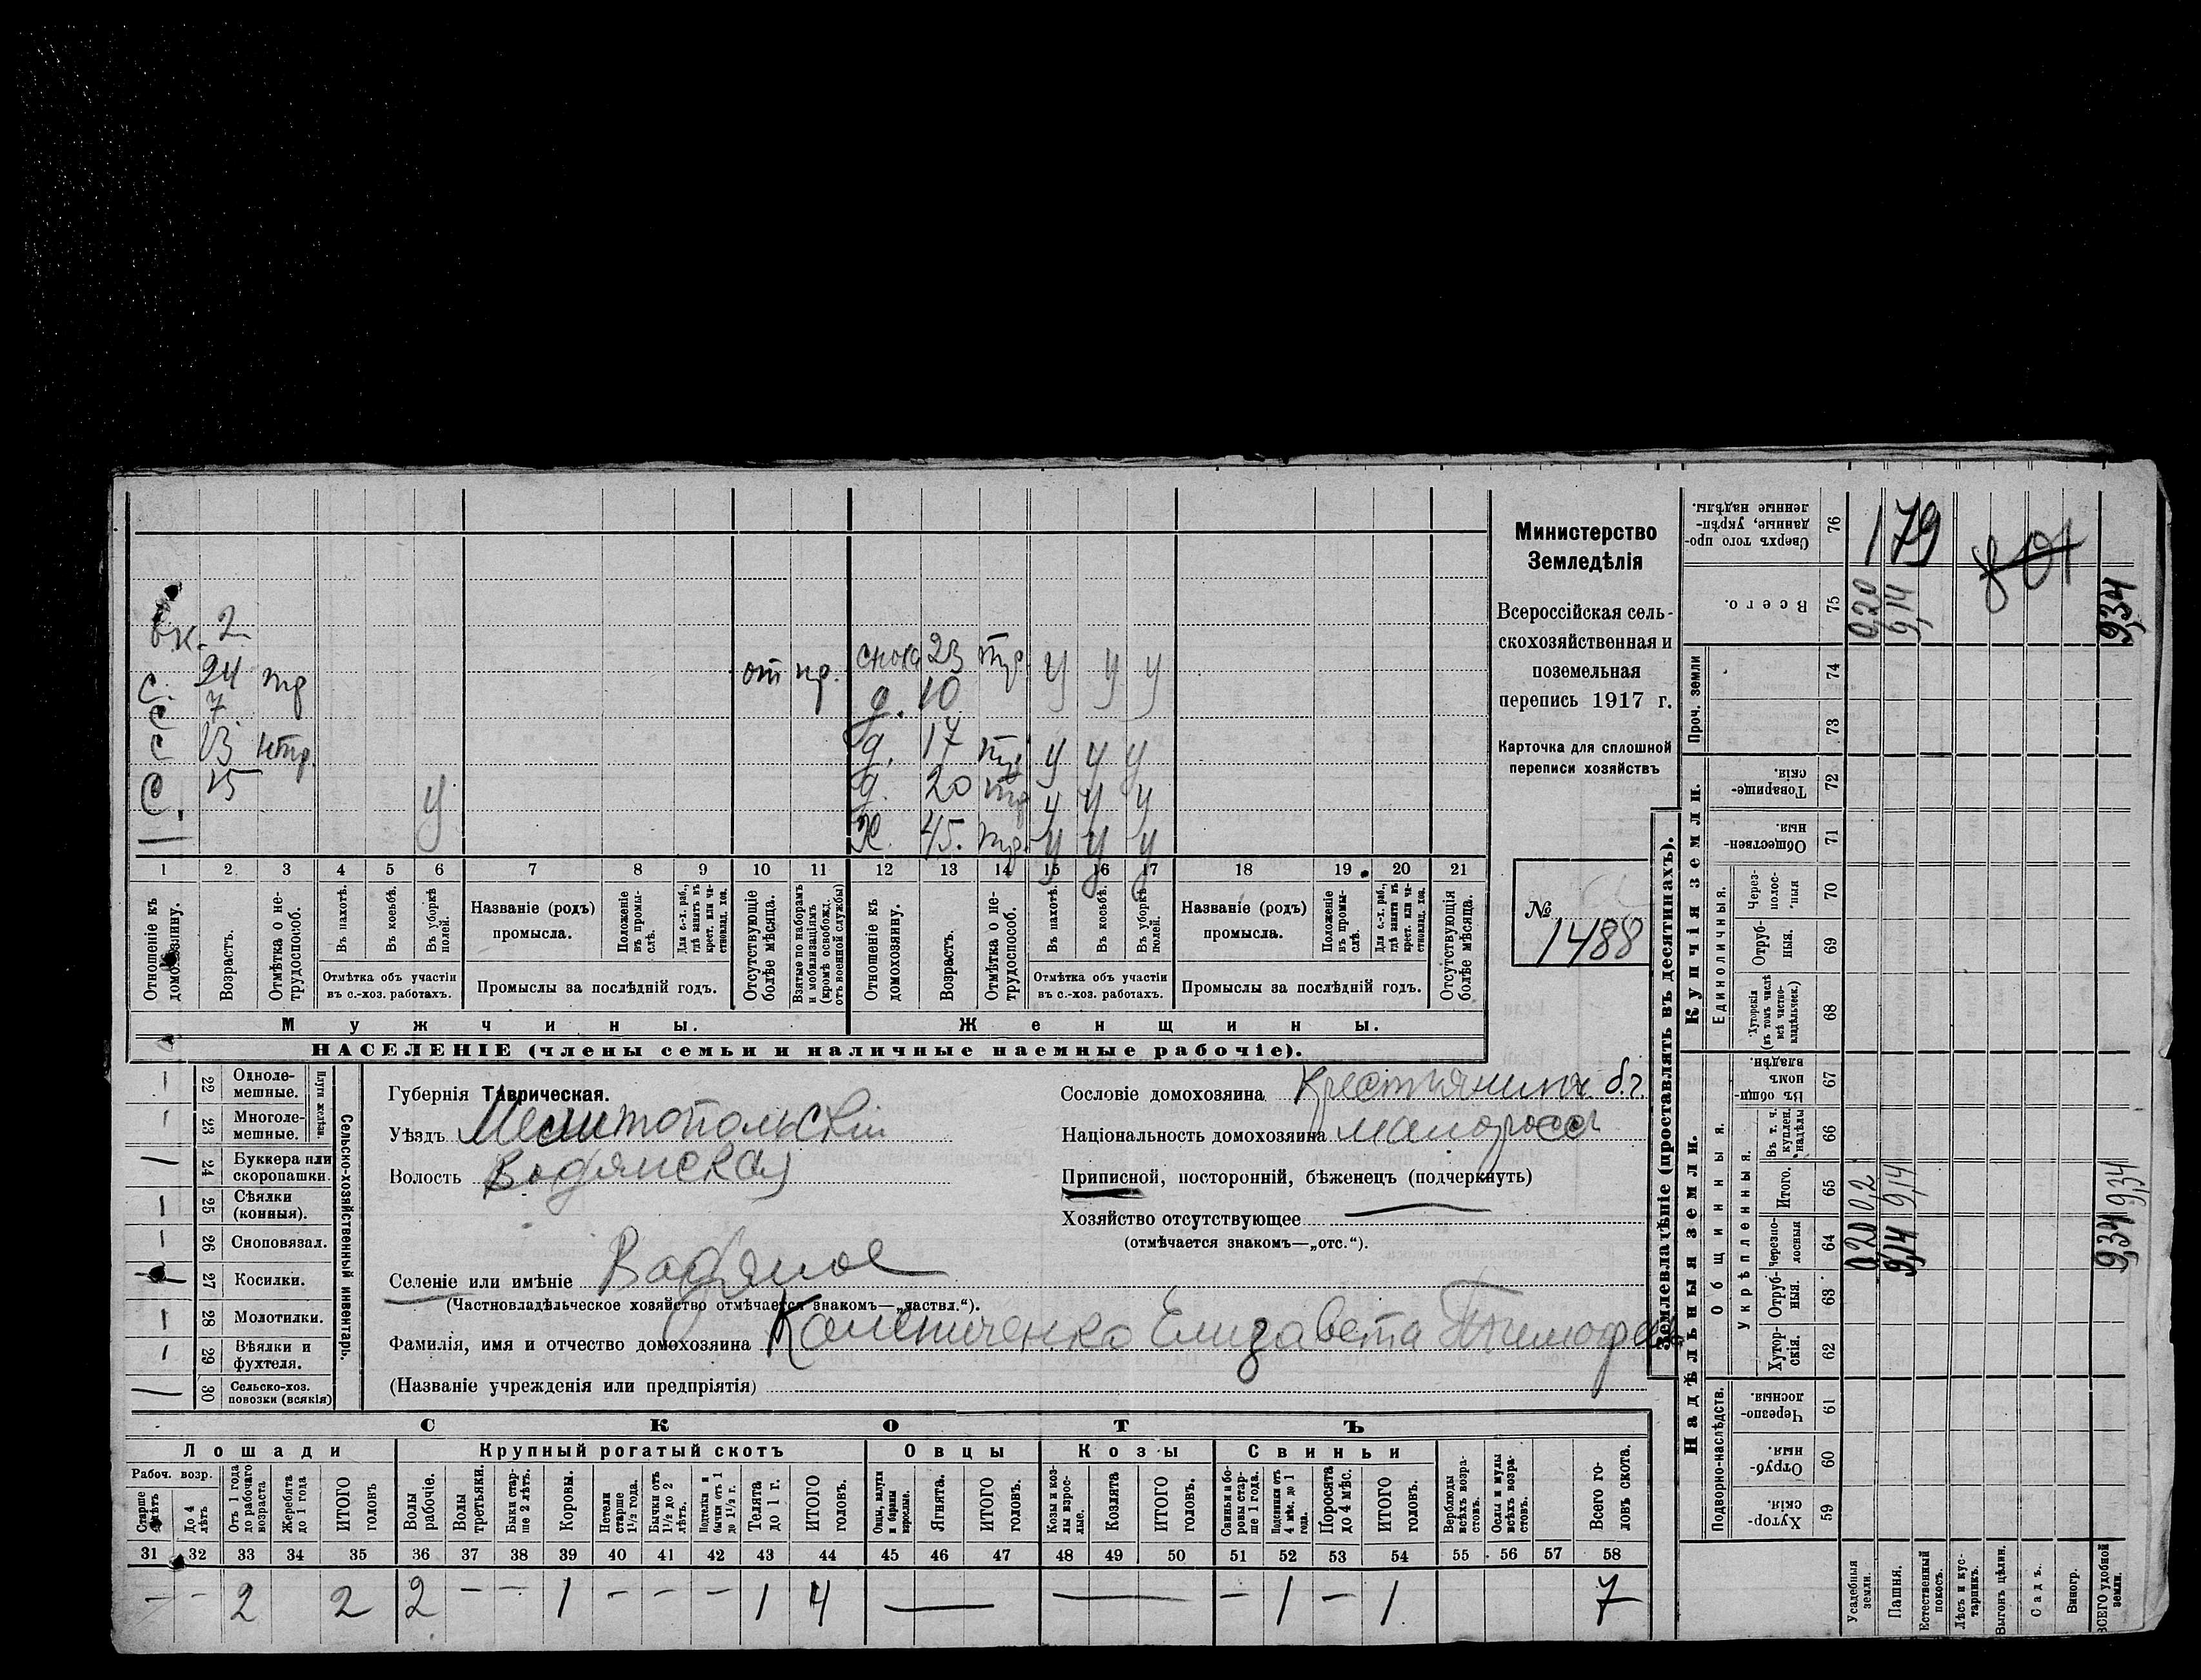 вк. 2
С. 24 тр от пр.
С 7
С 13 нтр.
С. 15 У
—
сноха 23 тр У У У
д. 10
д. 17 тр У У У
д. 20 тр У У У
Ж. 45. тр. У У У
1 2 3 4 5 6 7 8 9 10 11 12 13 14 15 16 17 18 19 20 21
Отношеніе къ домохозяину.
Возрастъ.
Отмѣтка о нетрудоспособ.
Въ пахотѣ.
Въ косьбѣ.
Въ уборкѣ полей.
Отмѣтка объ участіи въ с.-хоз. работахъ.
Названіе (родъ) промысла.
Положеніе въ промыслѣ.
Для с.-х. раб., гдѣ занятъ въ крест. или частновлад. хоз.
Промыслы за послѣдній годъ.
Отсутствующіе болѣе мѣсяца.
Взятые по наборамъ и мобилизаціямъ (кромѣ освобожд. отъ военной службы)
Отношеніе къ домохозяину.
Возрастъ.
Отмѣтка о нетрудоспособ.
Въ пахотѣ.
Въ косьбѣ.
Въ уборкѣ полей.
Отмѣтка объ участіи въ с.-хоз. работахъ.
Названіе (родъ) промысла.
Положеніе въ промыслѣ.
Для с.-х. раб., гдѣ занята въ крест. или частновлад. хоз.
Промыслы за послѣдній годъ.
Отсутствующія болѣе мѣсяца.
Мужчины.
Женщины.
НАСЕЛЕНІЕ (члены семьи и наличные наемные рабочіе).
Министерство
Земледѣлія
Всероссійская сель-
скохозяйственная и
поземельная
перепись 1917 г.
Карточка для сплошной
переписи хозяйствъ
№
1488
22 Однолемешные. —
23 Многолемешные. —
Плуги желѣзн.
24 Буккера или скоропашки. —
25 Сѣялки (конныя). —
26 Сноповязал. —
27 Косилки. —
28 Молотилки. —
29 Вѣялки и фухтеля. —
30 Сельско-хоз. повозки (всякія) —
Сельско-хозяйственный инвентарь.
Губернія Таврическая.
Уѣздъ Мелитопольскій
Волость Водянская
Селеніе или имѣніе Водяное
(Частновладѣльческое хозяйство отмѣчается знакомъ—„частвл.“).
Фамилія, имя и отчество домохозяина Калениченко Елизавета Тимоф
(Названіе учрежденія или предпріятія)
Сословіе домохозяина Крестьянинъ б.г.
Національность домохозяина малороссъ
Приписной, посторонній, бѣженецъ (подчеркнуть)
Хозяйство отсутствующее —
(отмѣчается знакомъ—„отс.“).
СКОТЪ
Лошади
Крупный рогатый скотъ
Овцы
Козы
Свиньи
Рабоч. возр.
Старше 4 лѣтъ
До 4 лѣтъ
Отъ 1 года до рабочаго возраста
Жеребята до 1 года
ИТОГО головъ
Волы рабочіе.
Волы третьяки.
Быки старше 2 лѣтъ.
Коровы.
Нетели старше 1½ года.
Бычки отъ 1½ до 2 лѣтъ.
Подтелки и бычки отъ 1 до 1½ г.
Телята до 1 г.
ИТОГО головъ.
Овцы, валухи и бараны взрослые.
Ягнята.
ИТОГО головъ.
Козы и козлы взрослые.
Козлята
ИТОГО головъ.
Свиньи и боровы старше 1 года.
Подсвинки отъ 4 мѣс. до 1 года.
Поросята до 4 мѣс.
ИТОГО головъ.
Верблюды всѣхъ возрастовъ.
Ослы и мулы всѣхъ возрастовъ.
Всего головъ скота.
31 32 33 34 35 36 37 38 39 40 41 42 43 44 45 46 47 48 49 50 51 52 53 54 55 56 57 58
— — 2 2 2 — — 1 — — — 1 4 — — — 1 — 1 7
Землевладѣніе (проставлять въ десятинахъ).
Надѣльныя земли.
Купчія земли.
Проч. земли
Подворно-наслѣдств.
Общинныя.
Укрѣпленныя.
Единоличныя.
59 Хуторскія
60 Отрубныя.
61 Черезполосныя
62 Хуторскія.
63 Отрубныя.
64 Черезполосныя 0,20 9,14 9,34
65 Итого. 0,2 9,14 9,34
66 Въ т. ч. куплен. надѣлы
67 Въ общинномъ владѣн.
68 Хуторскія (въ томъ числѣ всѣ частновладѣльческ.)
69 Отрубныя.
70 Черезполосныя
71 Общественныя.
72 Товарищескія.
73
74
75 Всего. 0,20 9,14 9,34
76 Сверхъ того проданные, укрѣпленные надѣлы.
179
801
Усадебныя земли.
Пашня.
Естественный покосъ.
Лѣсъ и кустарникъ.
Выгонъ цѣлин.
Садъ.
Виногр.
ВСЕГО удобной земли.